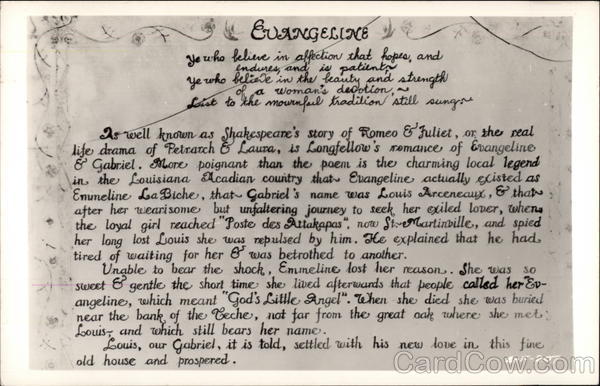 EVANGELINE
Ye who believe in affection that hopes, and
endures, and is patient~
Ye who believe in the beauty and strength
of a woman's devotion,~
List to the mournful tradition still sung~
As well known as Shakespeare's story of Romeo & Juliet, or the real
life drama of Petrarch & Laura, is Longfellow's romance of Evangeline
& Gabriel. More poignant than the poem is the charming local legend
in the Louisiana Acadian country that Evangeline actually existed as
Emmeline LaBiche, that Gabriel's name was Louis Arceneaux, & that
after her wearisome but unfaltering journey to seek her exiled lover, when
the loyal girl reached "Poste des Attakapas", now St. Martinville, and spied
her long lost Louis she was repulsed by him. He explained that he had
tired of waiting for her & was betrothed to another.
Unable to bear the shock, Emmeline lost her reason. She was so
sweet & gentle the short time she lived afterwards that people called her Ev-
angeline, which meant "God's Little Angel". When she died she was buried
near the bank of the Teche, not far from the great oak where she met
Louis- and which still bears her name.
Louis, our Gabriel, it is told, settled with his new love in this fine
old house and prospered.
CardCow.com